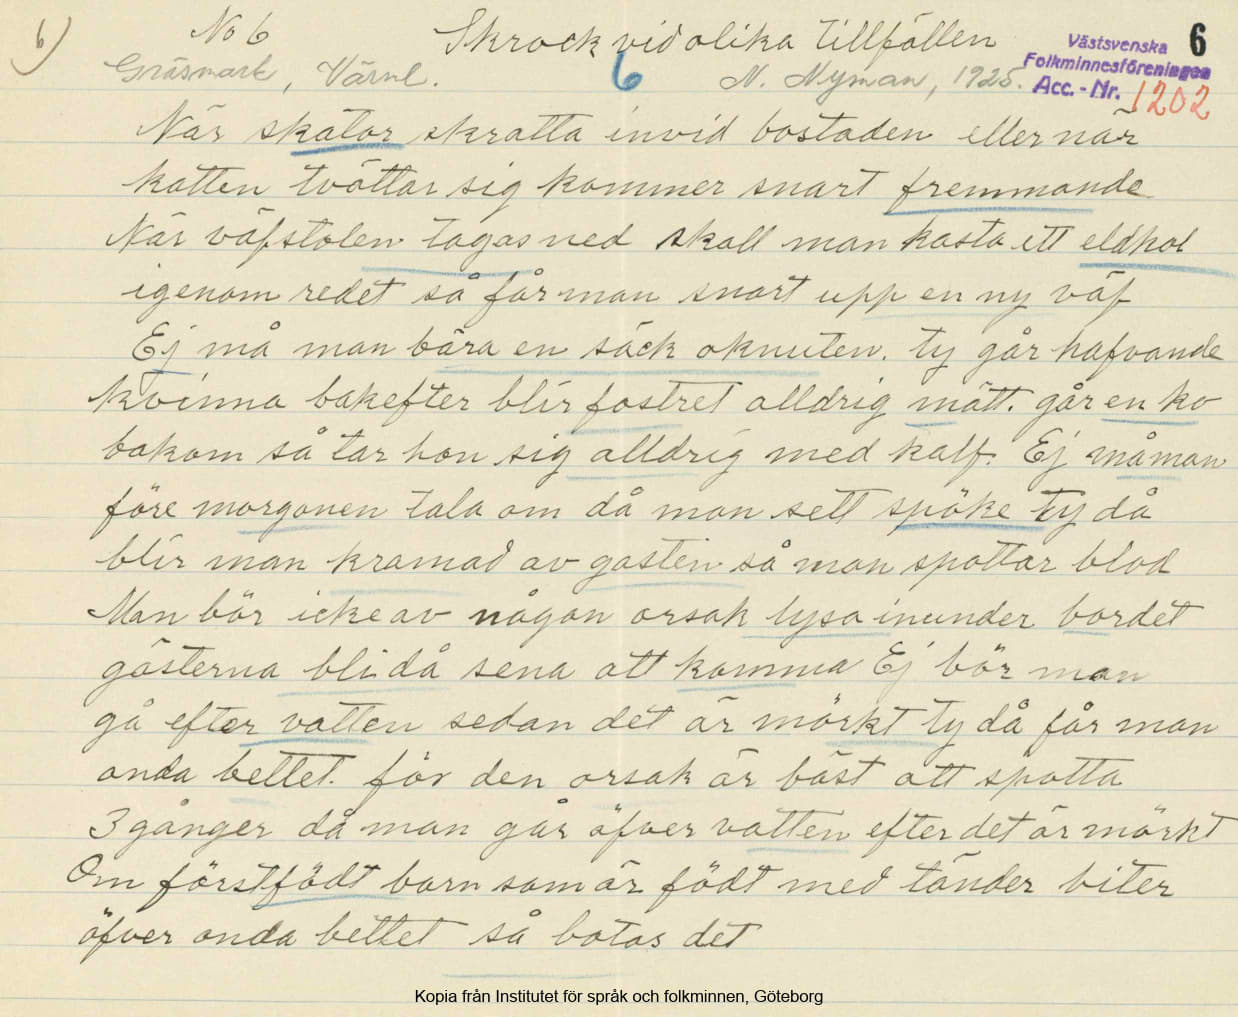 6)
No 6 Skrock vid olika tillfällen
6
Västsvenska
Folkminnesföreningen
Acc.-Nr. 1202
Gräsmark, Värml. 6 N. Nyman, 1925.
När skator skratta invid bostaden eller när
katten tvättar sig kommer snart fremmande
När väfstolen tagas ned skall man kasta ett eldkol
igenom redet så får man snart upp en ny väf
Ej må man bära en säck oknuten. ty går hafvande
kvinna bakefter blir fostret alldrig mätt. går en ko
bakom så tar hon sig alldrig med kalf. Ej må man
före morgonen tala om då man sett spöke ty då
blir man kramad av gasten så man spottar blod
Man bör icke av någon orsak lysa inunder bordet
gästerna bli då sena att komma Ej bör man
gå efter vatten sedan det är mörkt ty då får man
onda bettet. för den orsak är bäst att spotta
3 gånger då man går öfver vatten efter det är mörkt
Om förstfödt barn som är födt med tänder biter
öfver onda bettet så botas det
Kopia från Institutet för språk och folkminnen, Göteborg